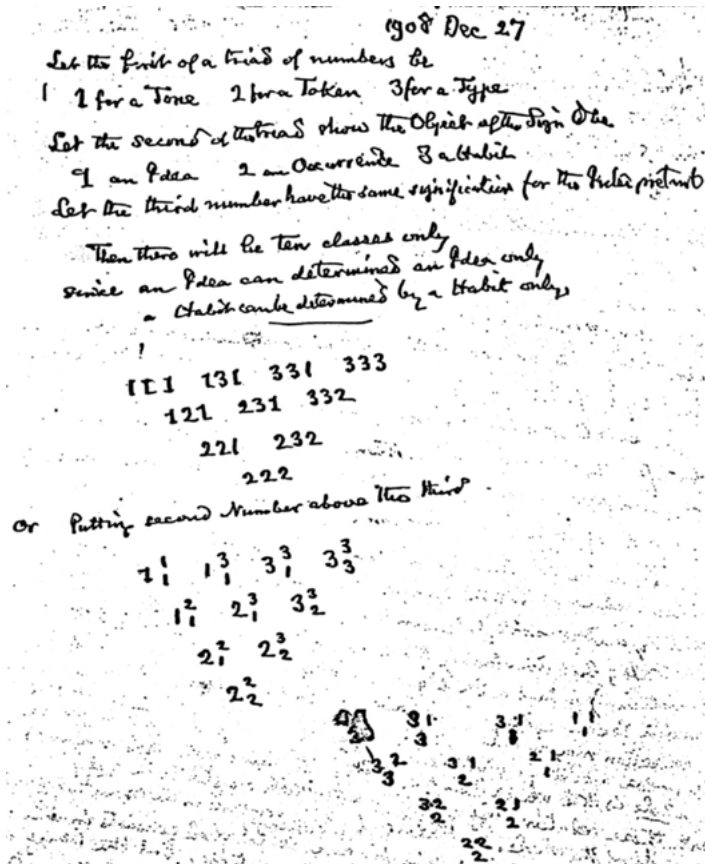 1908 Dec 27
Let the first of a triad of numbers be
1 1 for a Tone 2 for a Token 3 for a Type
Let the second of the triad show the Object of the Sign to be
1 an Idea 2 an Occurrence 3 a Habit
Let the third number have the same signification for the Interpretant
Then there will be ten classes only
since an Idea can determined an Idea only
a Habit can be determined by a Habit only,
111 131 331 333
121 231 332
221 232
222
or Putting second Number above the third
1 1 1 1 3 1 3 3 1 3 3 3
1 2 1 2 3 1 3 3 2
2 2 1 2 3 2
2 2 2
3 1 3 1 1 1
3 3 1
3 2 3 1 2 1
3 2 1
3 2 2 1
2 2
2 2
2